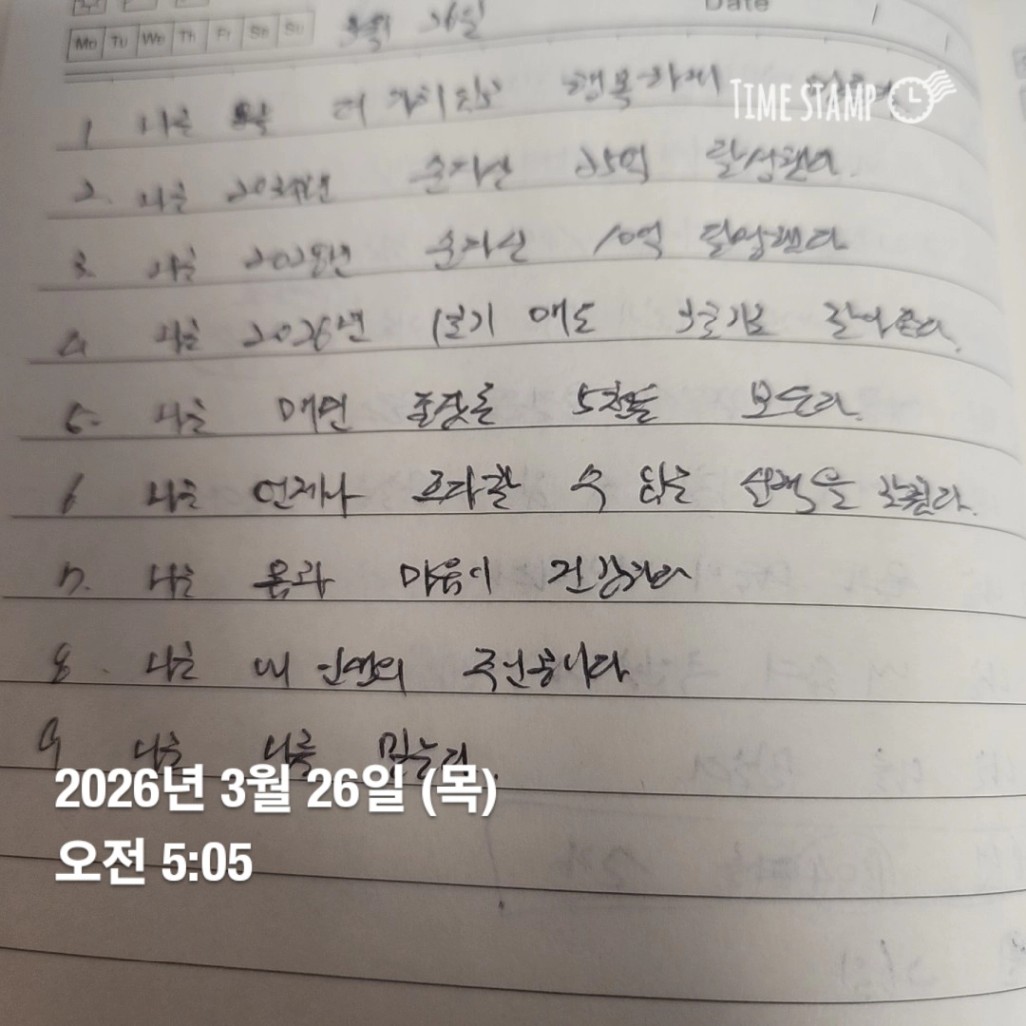 Date
Mo Tu We Th Fr Sa Su 3월 26일
TIME STAMP
1 나는 행복하게
2. 나는 순자산 25억 달성했다.
3. 나는 2028년 순자산 10억 달성했다
4 나는 2026년 매도 갈아탄다.
5. 나는 매년 5천을 모은다.
6 나는 언제나 수 있는 선택을
7. 나는 몸과 마음이 건강하다
8. 나는 내 인생의 주인공이다
9 나는 나를 믿는다.
2026년 3월 26일 (목)
오전 5:05